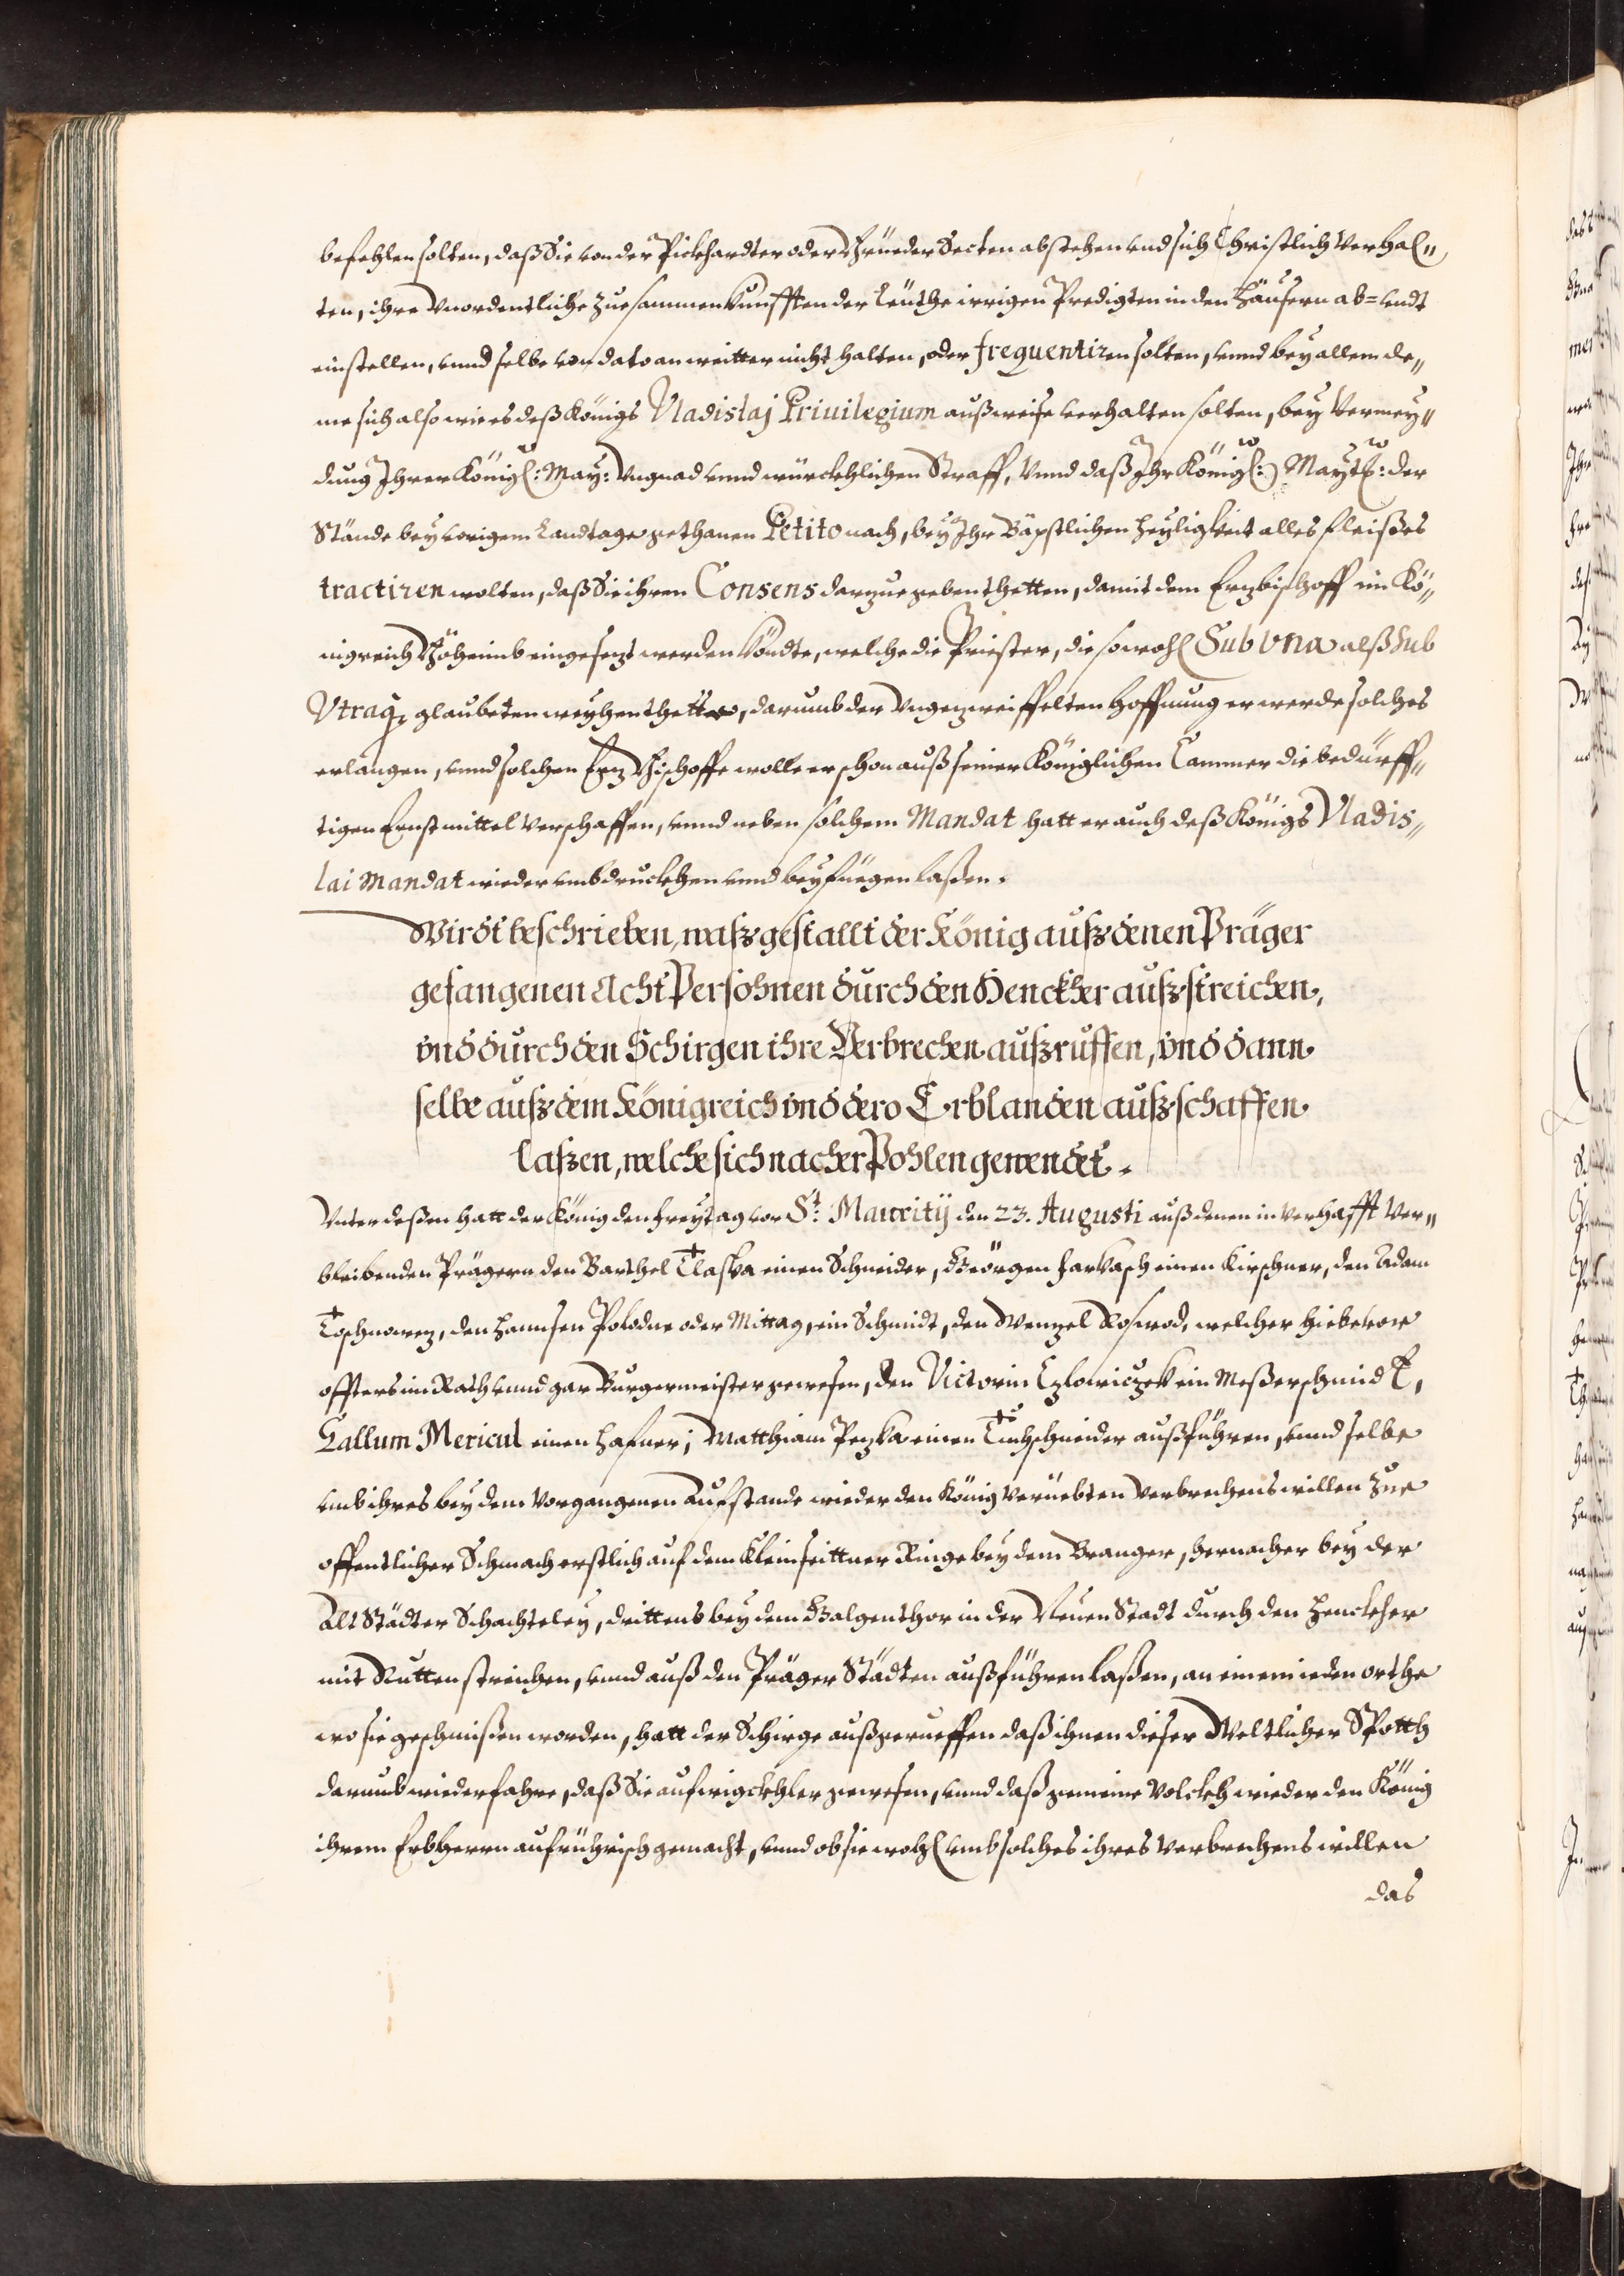 befehlen solten, daß Sie von der Pickhardter oder Brüeder Secten abstehen vnd sich Christlich verhal„
ten, ihre vnordentliche Zuesammenkunfften der Leüthe irrigen Predigten in den Häusern ab= vndt
einstellen, vnnd selbe von dato an weitter nicht halten, oder frequentiren solten, vnnd bey allem de„
me sich also wie es deß Königs Vladislaj Priuilegium außweise verhalten solten, bey Vermey„
dung Ihrer Königl: May: Vngnad vnnd würckhlichen Straff, Vnnd daß Ihr Königl: Maytt: der
Stände bey vorigem Landtage gethanen Petito nach, bey Ihr Bäpstlichen Heyligkeit alles fleißes
tractiren wolten, daß Sie ihren Consens darzue geben thetten, damit dem Erzbischoff im Kö„
nigreich Böheimb eingesezt werden köndte, welche die Priester, die sowohl Sub vna alß Sub
Vtraq; glaubeten weyhen thetten, darumb der Vngezweiffelten Hoffnung er werde solches
erlangen, vnnd solchen Erz Bischoffe wolle er schon auß seiner Königlichen Cammer die bedürff„
tigen Ernst mittel verschaffen, vnnd neben solchem Mandat hatt er auch deß Königs Vladis„
lai Mandat wieder vmbdruckhen vnnd beyfüegen laßen.
Wirdt beschrieben, waß gestallt der König auß denen Präger
gefangenen Acht Persohnen durch den Henckher auß streichen,
vnd durch den Schirgen ihre Verbrechen außruffen, vnd dann
selbe auß dem Königreich vnd dero Erblanden auß schaffen
laßen, welche sich nacher Pohlen gewendet.
Vnter deßen hatt der König den Freytag vor St: Mauritij den 23. Augusti auß denen in Verhafft Ver„
bleibenden Prägern den Barthel Tlaska einen Schneider, Geörgen Farkasch einen Kirschner, den Adam
Toschnowez, den Hannsen Poledne oder Mittag, ein Schmidt, den Wenzel Roswod, welcher hiebevor
offters im Rath vnnd gar Burgermeister gewesen, den Victorin Czlowiczek ein Meßerschmidt,
Gallum Mericul einen Hafner; Matthiam Pezka einen Tuchschneider außführen, vnnd selbe
vmb ihres bey dem vorgangenen Aufstande wieder den König verüebten Verbrechens willen zue
offentlicher Schmach erstlich auf dem Kleinseittner Ringe bey dem Branger, hernacher bey der
Alt Städter Schachteley, drittens bey dem Galgenthor in der Neuen Stadt durch den Henckher
mit Rutten streichen, vnnd auß den Präger Städten außführen laßen, an einem ieden orthe
wo sie geschmißen worden, hatt der Schirge außgerueffen daß ihnen dieser Weltlicher Spotth
darumb wiederfahre, daß Sie aufwigckhler gewesen, vnnd daß gemeine Volckh wieder den König
ihrem Erbherrn aufrührisch gemacht, vnnd ob sie wohl vmb solches ihres Verbrechens willen
das